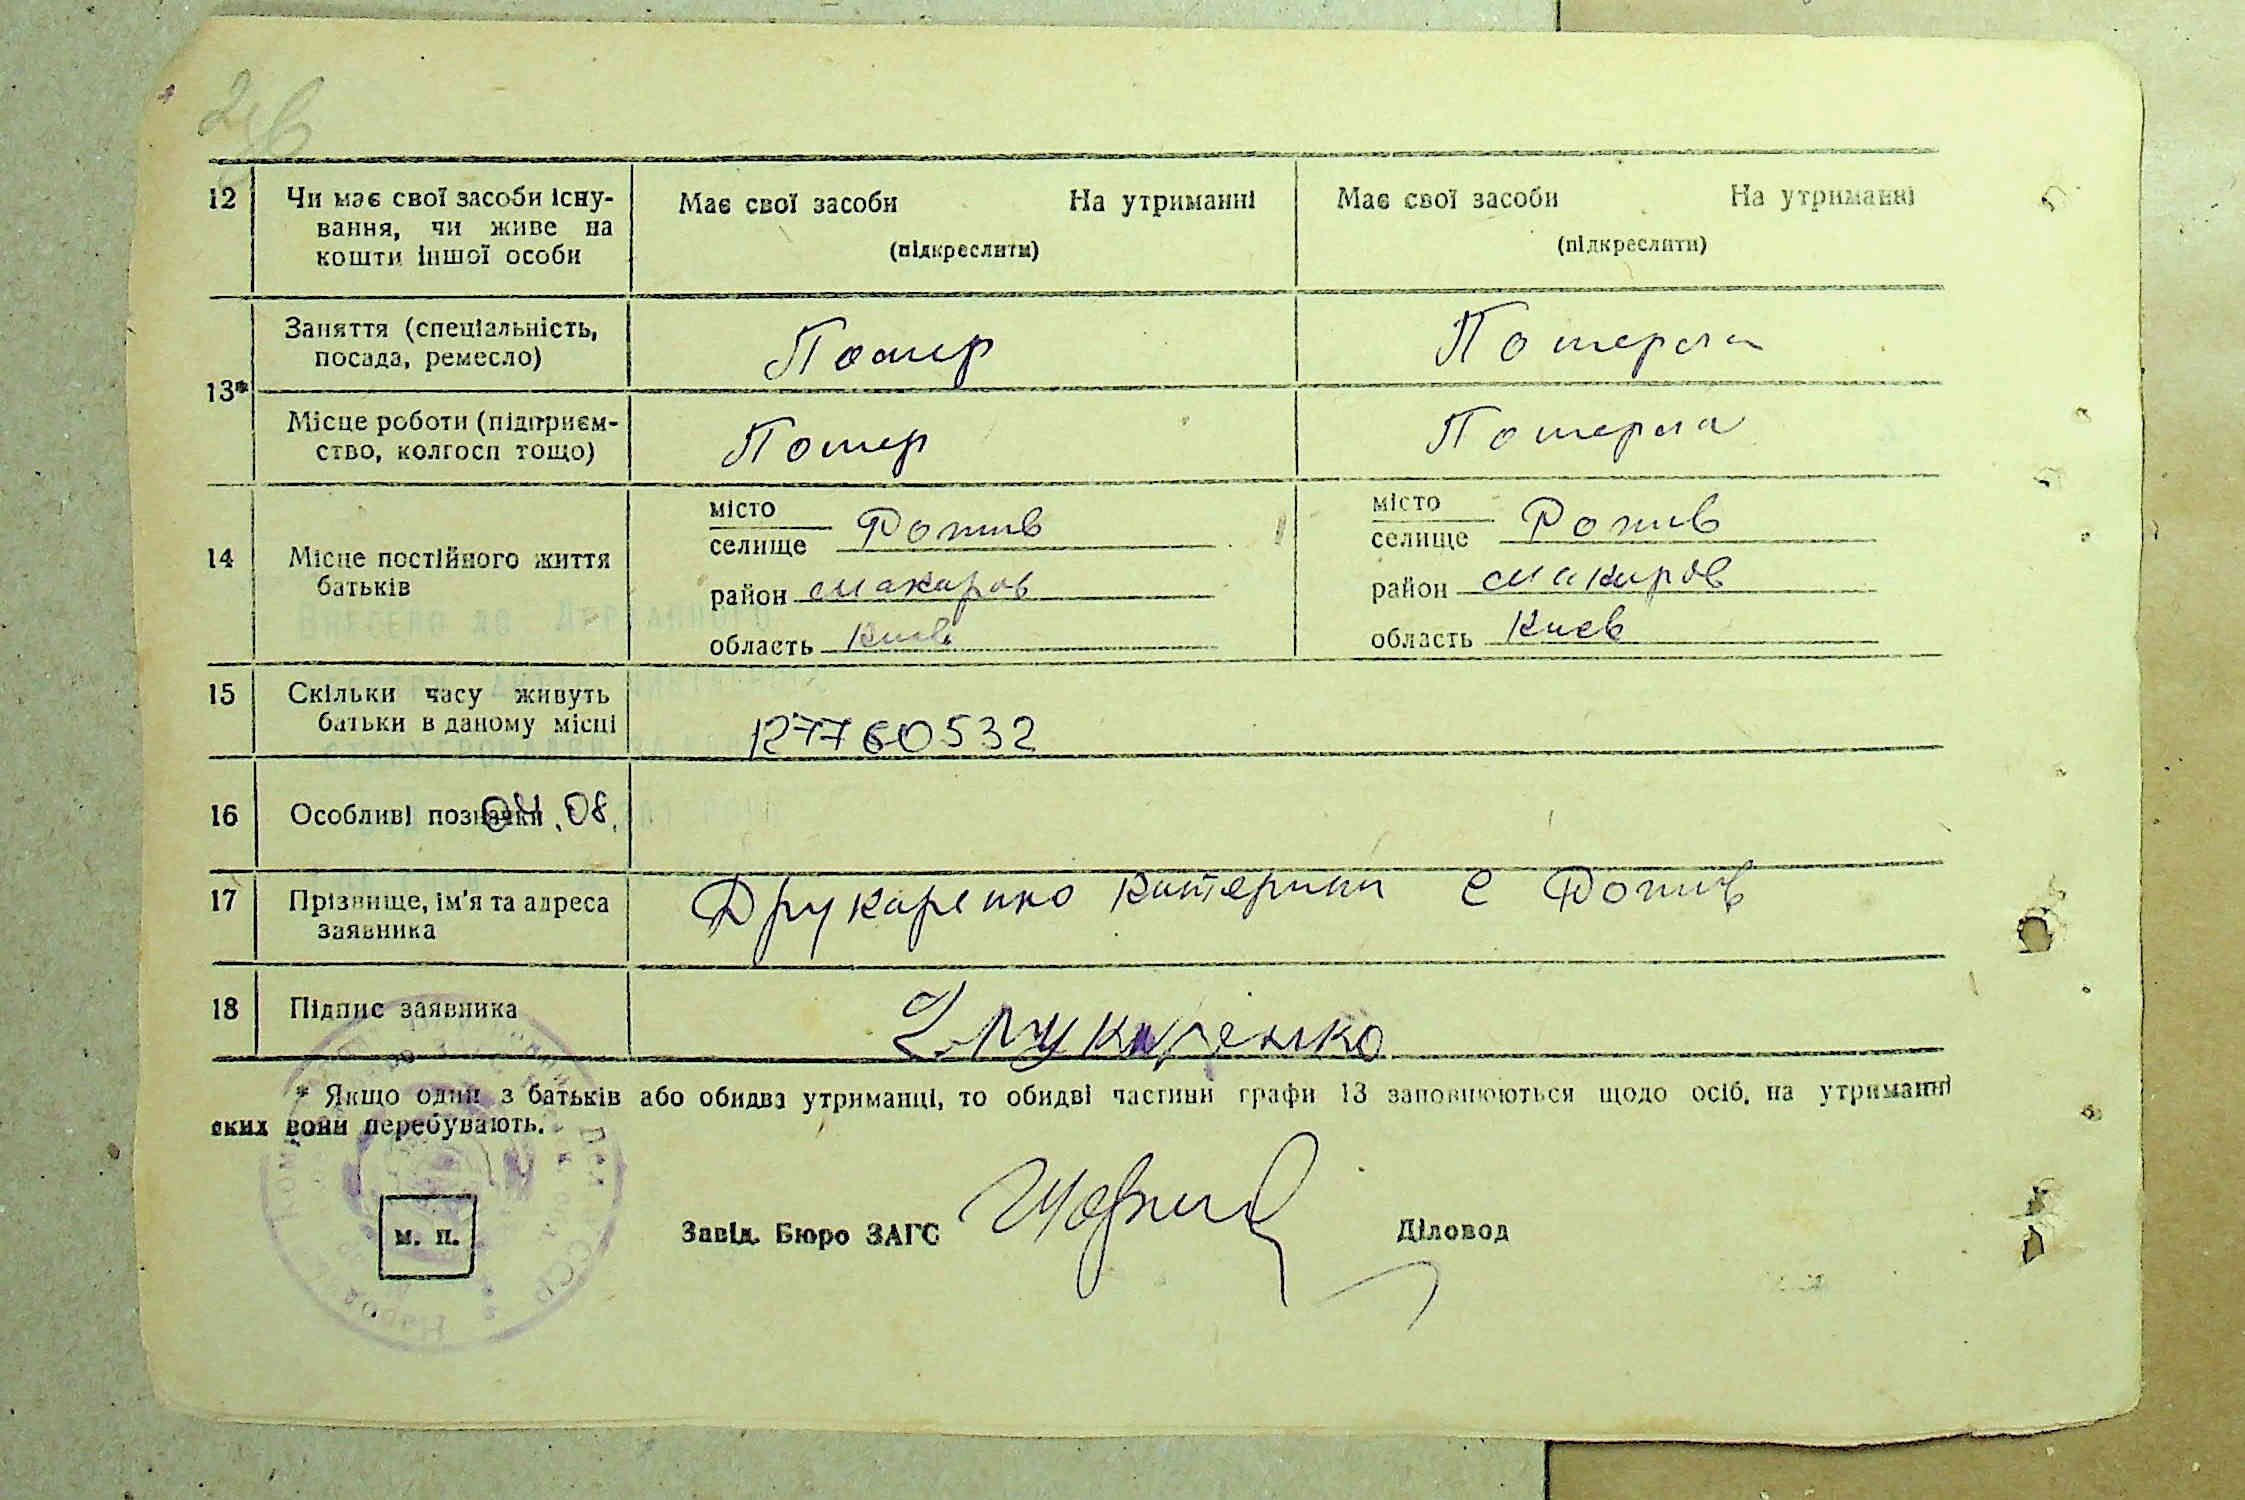 12 Чи має свої засоби існу-
вання, чи живе на
кошти іншої особи
Має свої засоби На утриманні
(підкреслити)
Має свої засоби На утриманні
(підкреслити)
13*
Заняття (спеціальність,
посада, ремесло)
Помер
Померла
Місце роботи (підприєм-
ство, колгосп тощо)
Помер
Померла
14 Місце постійного життя
батьків
місто
селище Рожив
район Макаров
область Киев
місто
селище Рожив
район Макаров
область Киев
15 Скільки часу живуть
батьки в даному місці
127760532
16 Особливі позначки 04.08.
17 Прізвище, ім'я та адреса
заявника
Друкаренко Катерина с Рожив
18 Підпис заявника
Друкаренко
* Якщо один з батьків або обидва утриманці, то обидві частини графи 13 заповнюються щодо осіб, на утриманні
яких вони перебувають.
м. п.
Завід. Бюро ЗАГС
Діловод